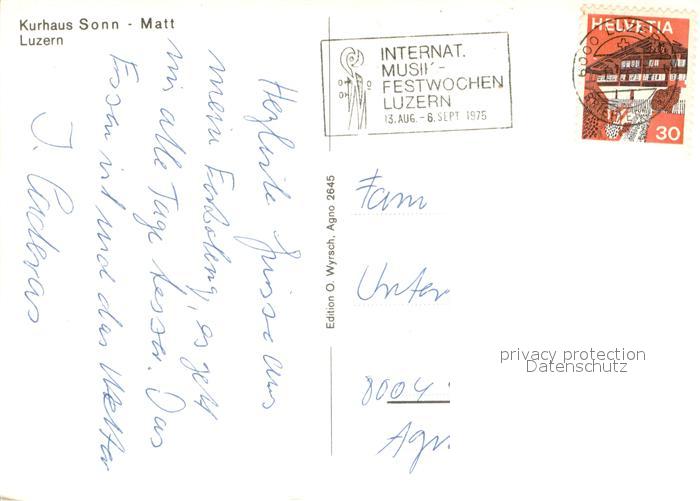 Kurhaus Sonn - Matt
Luzern
INTERNAT.
MUSIK-
FESTWOCHEN
LUZERN
13. AUG. - 6. SEPT. 1975
HELVETIA
30
6000 LUZERN
Herzliche Grüsse aus
mein Erholung, es geht
mir alle Tage besser. Das
Essen ist und das Wetter
J.
Edition O. Wyrsch, Agno 2645
Fam
Unter
8004
Agn.
privacy protection
Datenschutz